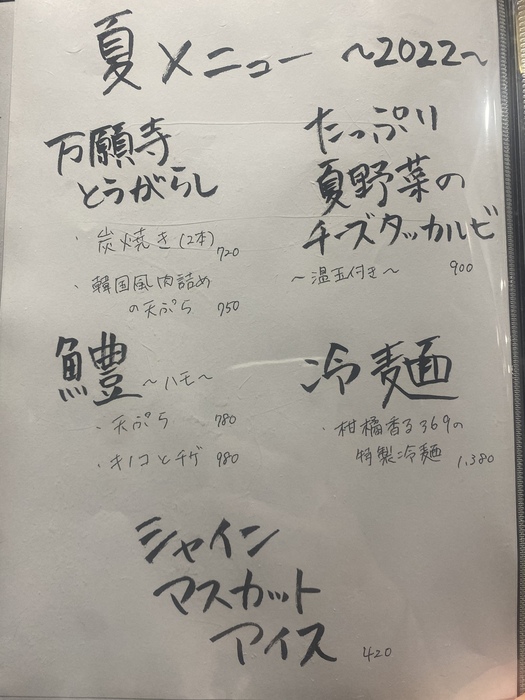 夏メニュー 〜2022〜
万願寺
とうがらし
・炭焼き(2本) 720
・韓国風肉詰め
の天ぷら 750
たっぷり
夏野菜の
チーズタッカルビ
〜温玉付き〜 900
鱧 〜ハモ〜
・天ぷら 780
・キノコとチゲ 980
冷麺
・柑橘香る369の
特製冷麺 1,380
シャイン
マスカット
アイス 420